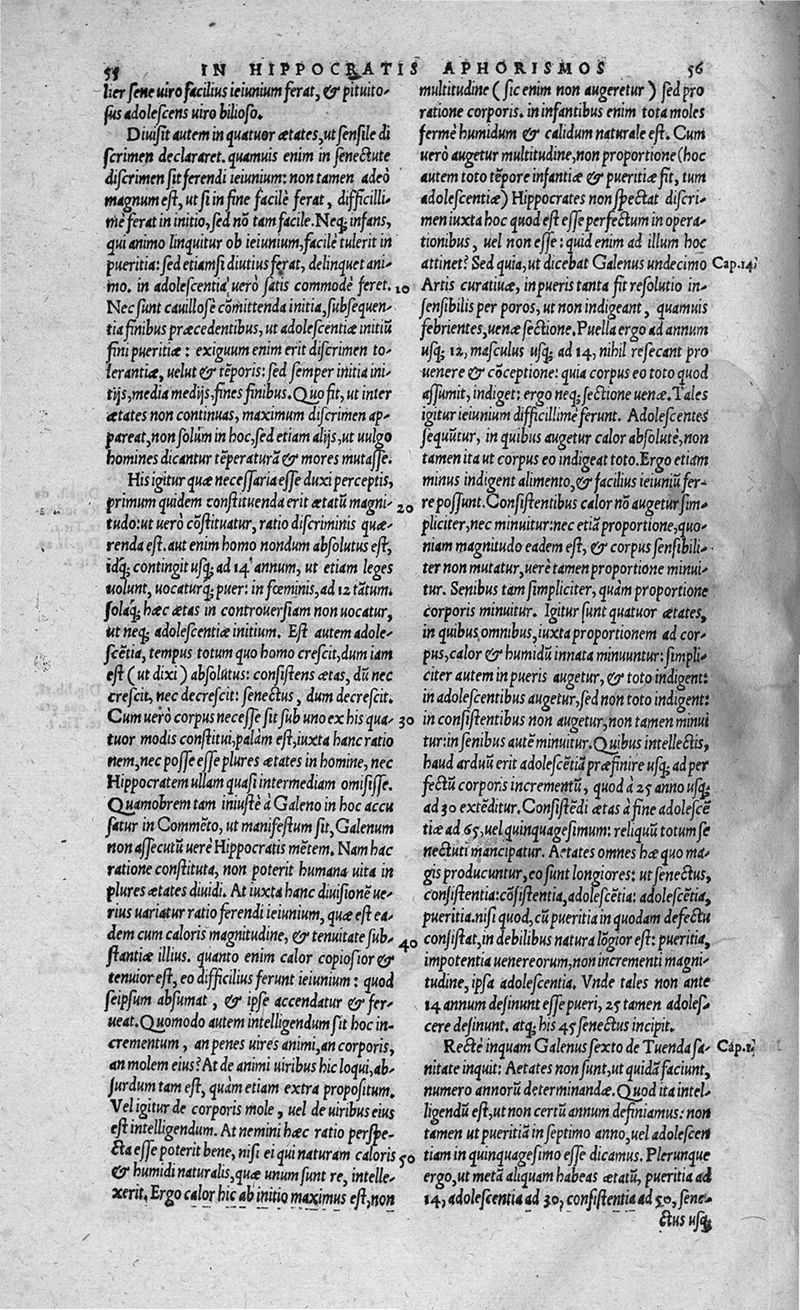 55 IN HIPPOCRATIS APHORISMOS 56
lier sene uiro facilius ieiunium ferat, & pituito-
sus adolescens uiro bilioso.
Diuisit autem in quatuor ætates, ut sensile di
scrimen declararet. quamuis enim in senectute
discrimen sit ferendi ieiunium: non tamen adeò
magnum est, ut si in fine facilè ferat, difficilli-
mè ferat in initio, sed nō tam facile. Neq; infans,
qui animo linquitur ob ieiunium, facilè tulerit in
pueritia: sed etiamsi diutius ferat, delinquet ani-
mo. in adolescentia uerò satis commodè feret.
Nec sunt cauillosè cōmittenda initia, subsequen-
tia finibus præcedentibus, ut adolescentiæ initiū
fini pueritiæ: exiguum enim erit discrimen to-
lerantiæ, uelut & tēporis: sed semper initia ini-
tijs, media medijs, fines finibus. Quo fit, ut inter
ætates non continuas, maximum discrimen ap-
pareat, non solùm in hoc, sed etiam alijs, ut uulgo
homines dicantur tēperaturā & mores mutasse.
His igitur quæ necessaria esse duxi perceptis,
primum quidem constituenda erit ætatū magni-
tudo: ut uerò cōstituatur, ratio discriminis quæ-
renda est. aut enim homo nondum absolutus est,
idq; contingit usq; ad 14 annum, ut etiam leges
uolunt, uocaturq; puer: in fœminis, ad 12 tātum.
solaq; hæc ætas in controuersiam non uocatur,
ut neq; adolescentiæ initium. Est autem adole-
scētia, tempus totum quo homo crescit, dum iam
est (ut dixi) absolutus: consistens ætas, dū nec
crescit, nec decrescit: senectus, dum decrescit.
Cum uerò corpus necesse sit sub uno ex his qua-
tuor modis constitui, palàm est, iuxta hanc ratio
nem, nec posse esse plures ætates in homine, nec
Hippocratem ullam quasi intermediam omisisse.
Quamobrem tam iniustè à Galeno in hoc accu
satur in Commēto, ut manifestum sit, Galenum
non assecutū uerè Hippocratis mētem. Nam hac
ratione constituta, non poterit humana uita in
plures ætates diuidi. At iuxta hanc diuisionē ue-
rius uariatur ratio ferendi ieiunium, quæ est ea-
dem cum caloris magnitudine, & tenuitate sub-
stantiæ illius. quanto enim calor copiosior &
tenuior est, eo difficilius ferunt ieiunium: quod
seipsum absumat, & ipse accendatur & fer-
ueat. Quomodo autem intelligendum sit hoc in-
crementum, an penes uires animi, an corporis,
an molem eius? At de animi uiribus hic loqui, ab-
surdum tam est, quàm etiam extra propositum.
Vel igitur de corporis mole, uel de uiribus eius
est intelligendum. At nemini hæc ratio perspe-
cta esse poterit bene, nisi ei qui naturam caloris
& humidi naturalis, quæ unum sunt re, intelle-
xerit. Ergo calor hic ab initio maximus est, non
10
20
30
40
50
multitudine (sic enim non augeretur) sed pro
ratione corporis. in infantibus enim tota moles
fermè humidum & calidum naturale est. Cum
uerò augetur multitudine, non proportione (hoc
autem toto tēpore infantiæ & pueritiæ fit, tum
adolescentiæ) Hippocrates non spectat discri-
men iuxta hoc quod est esse perfectum in opera-
tionibus, uel non esse: quid enim ad illum hoc
attinet? Sed quia, ut dicebat Galenus undecimo
Artis curatiuæ, in pueris tanta fit resolutio in-
sensibilis per poros, ut non indigeant, quamuis
febrientes, uenæ sectione. Puella ergo ad annum
usq; 12, masculus usq; ad 14, nihil resecant pro
uenere & cōceptione: quia corpus eo toto quod
assumit, indiget: ergo neq; sectione uenæ. Tales
igitur ieiunium difficillimè ferunt. Adolescentes
sequūtur, in quibus augetur calor absolutè, non
tamen ita ut corpus eo indigeat toto. Ergo etiam
minus indigent alimento, & facilius ieiuniū fer-
re possunt. Consistentibus calor nō augetur sim-
pliciter, nec minuitur: nec etiā proportione, quo-
niam magnitudo eadem est, & corpus sensibili-
ter non mutatur, uerè tamen proportione minui-
tur. Senibus tam simpliciter, quàm proportione
corporis minuitur. Igitur sunt quatuor ætates,
in quibus omnibus, iuxta proportionem ad cor-
pus, calor & humidū innata minuuntur: simpli-
citer autem in pueris augetur, & toto indigent:
in adolescentibus augetur, sed non toto indigent:
in consistentibus non augetur, non tamen minui
tur: in senibus autē minuitur. Quibus intellectis,
haud arduū erit adolescētiā præfinire usq; ad per
fectū corporis incrementū, quod à 25 anno usq;
ad 30 extēditur. Consistēdi ætas à fine adolescē
tiæ ad 65, uel quinquagesimum: reliquū totum se
nectuti mancipatur. Aetates omnes hæ quo ma-
gis producuntur, eo sunt longiores: ut senectus,
consistentia: cōsistentia, adolescētia: adolescētia,
pueritia. nisi quod, cū pueritia in quodam defectu
consistat, in debilibus natura lōgior est: pueritia,
impotentia uenereorum, non incrementi magni-
tudine, ipsa adolescentia. Vnde tales non ante
14 annum desinunt esse pueri, 25 tamen adoles-
cere desinunt. atq; his 45 senectus incipit.
Rectè inquam Galenus sexto de Tuenda sa-
nitate inquit: Aetates non sunt, ut quidā faciunt,
numero annorū determinandæ. Quod ita intel-
ligendū est, ut non certū annum definiamus: non
tamen ut pueritiā in septimo anno, uel adolescen
tiam in quinquagesimo esse dicamus. Plerunque
ergo, ut metā aliquam habeas ætatū, pueritia ad
14, adolescentia ad 30, consistentia ad 50, sene-
ctus usq;
Cap.14